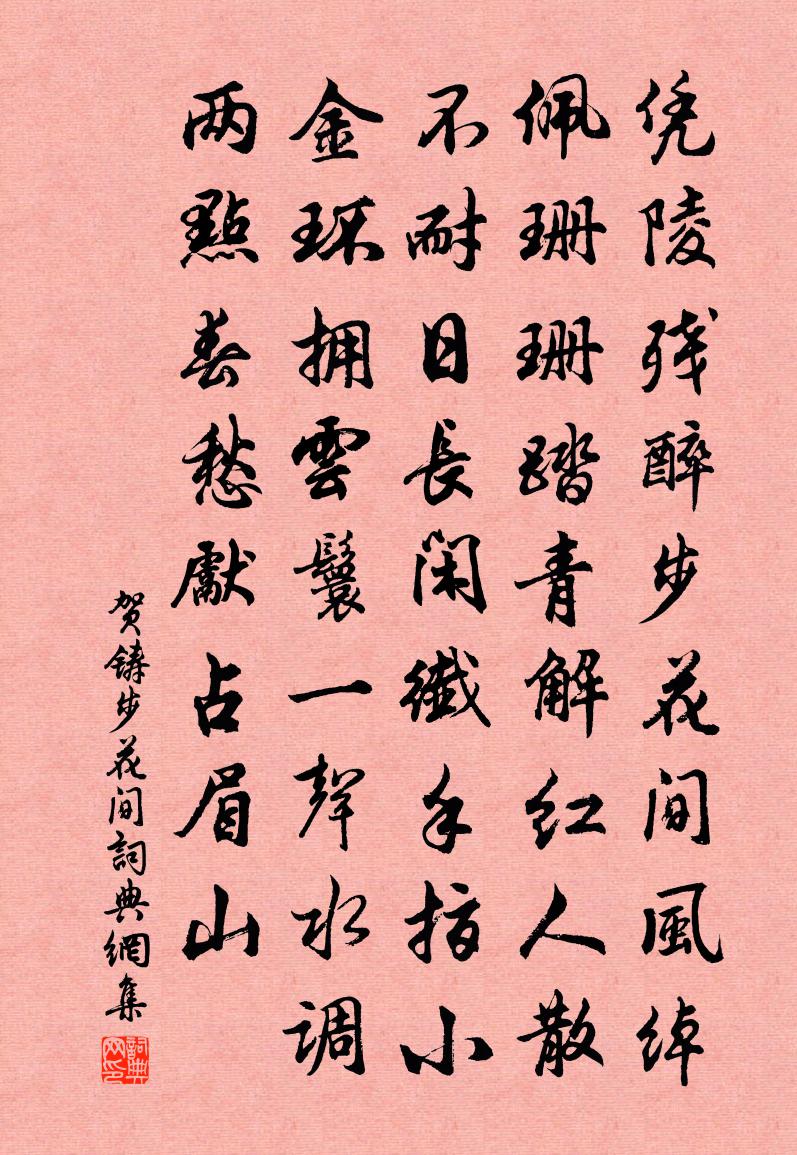 凭陵残醉步花间風绰
佩珊珊踏青解红人散
不耐日長闲纖手指小
金环拥雲鬟一聲水调
两點春愁獻占眉山
贺铸步花间詞典網集
詞典网印